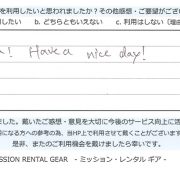 を利用したいと思われましたか？その他感想・ご要望がござ
したい　b. どちらともいえない　c. 利用はしない（理由
! Have a nice day!
ました。戴いたご感想・意見を大切に今後のサービス向上に活
になる方への参考の為、当HP上で利用させて戴くことがございます
是非、またのご利用機会を戴けましたら幸いです。
SSION RENTAL GEAR - ミッション・レンタル ギア -